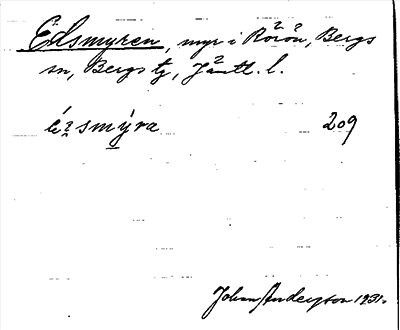 Edsmyren, myr i Rörön, Bergs
sn, Bergs tg, Jämtl. l.
209
Johan Anderson 1931.